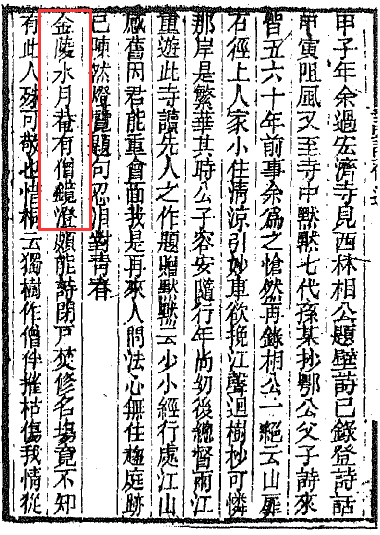 甲子年余過宏濟寺見西林相公題壁詩已錄登詩話
甲寅阻風又至寺中默默七代孫某抄鄂公父子詩來
皆五六十年前事余爲之愴然再錄相公一絶云山扉
石徑上人家小住清凉引妙車欲挽江聲迴樹杪可憐
那岸是繁華其時公子容安隨行年尚幼後總督兩江
重遊此寺讀先人之作題贈默默云少小經行處江山
感舊因君能重會面我是再來人問法心無住趨庭跡
已陳然燈覽題句忍淚對青春
金陵水月菴有僧鏡澄頗能詩閉戸焚修名塲竟不知
有此人殊可敬也惜桐云獨樹作僧伴摧枯傷我情從